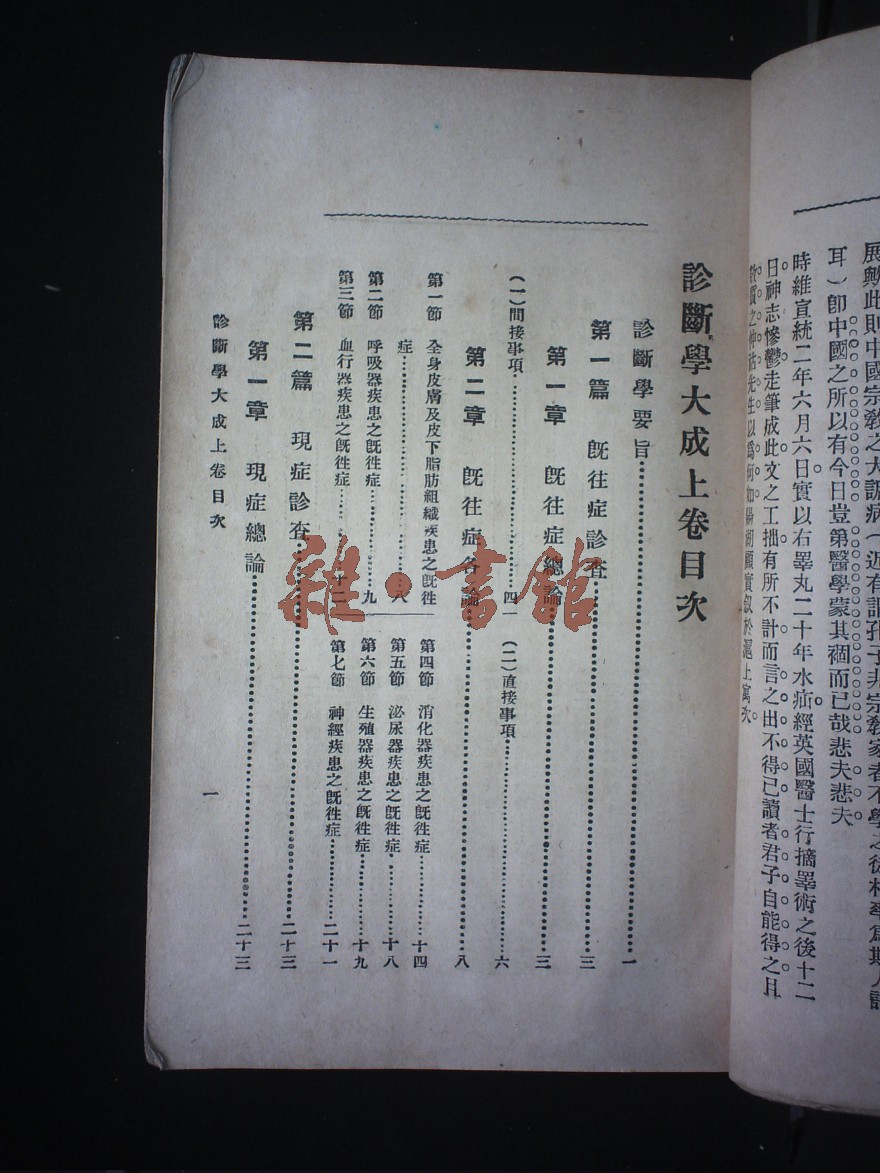 展歟此則中國宗敎之大詬病(近有謂孔子非宗敎家者不學之徒朽
耳)卽中國之所以有今日豈第醫學蒙其禍而已哉悲夫悲夫
時維宣統二年六月六日實以右睪丸二十年水疝經英國醫士行摘睪術之後十二
日神志慘鬱走筆成此文之工拙有所不計而言之出不得已讀者君子自能得之且
先生以爲何如陽湖顧實叙於滬上寓次
診斷學大成上卷目次
診斷學要旨……一
第一篇 旣往症診査……三
第一章 旣往症總論……三
(一)間接事項……四
(二)直接事項……六
第二章 旣往症各論……八
第一節 全身皮膚及皮下脂肪組織疾患之旣往
症……八
第二節 呼吸器疾患之旣往症……九
第三節 血行器疾患之旣往症……十二
第四節 消化器疾患之旣往症……十四
第五節 泌尿器疾患之旣往症……十八
第六節 生殖器疾患之旣往症……十九
第七節 神經疾患之旣往症……二十一
第二篇 現症診査……二十三
第一章 現症總論……二十三
診斷學大成上卷目次
一
雜·書館